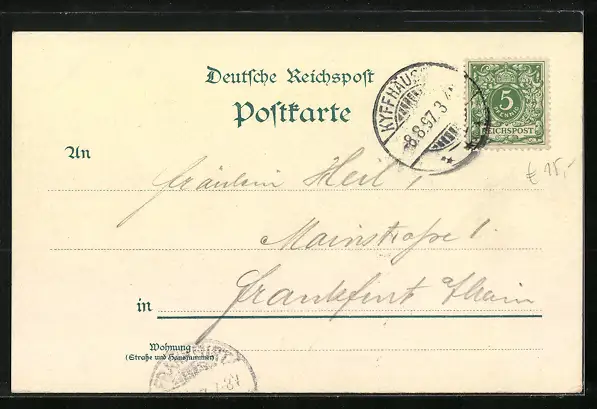 Deutsche Reichspost
Postkarte
KYFFHÄUS
8.8.97.3
5
PFENNIG
REICHSPOST
An
Fräulein Herl,
€ 15,-
Mainstraße 1.
in Frankfurt Main
Wohnung
(Straße und Hausnummer)